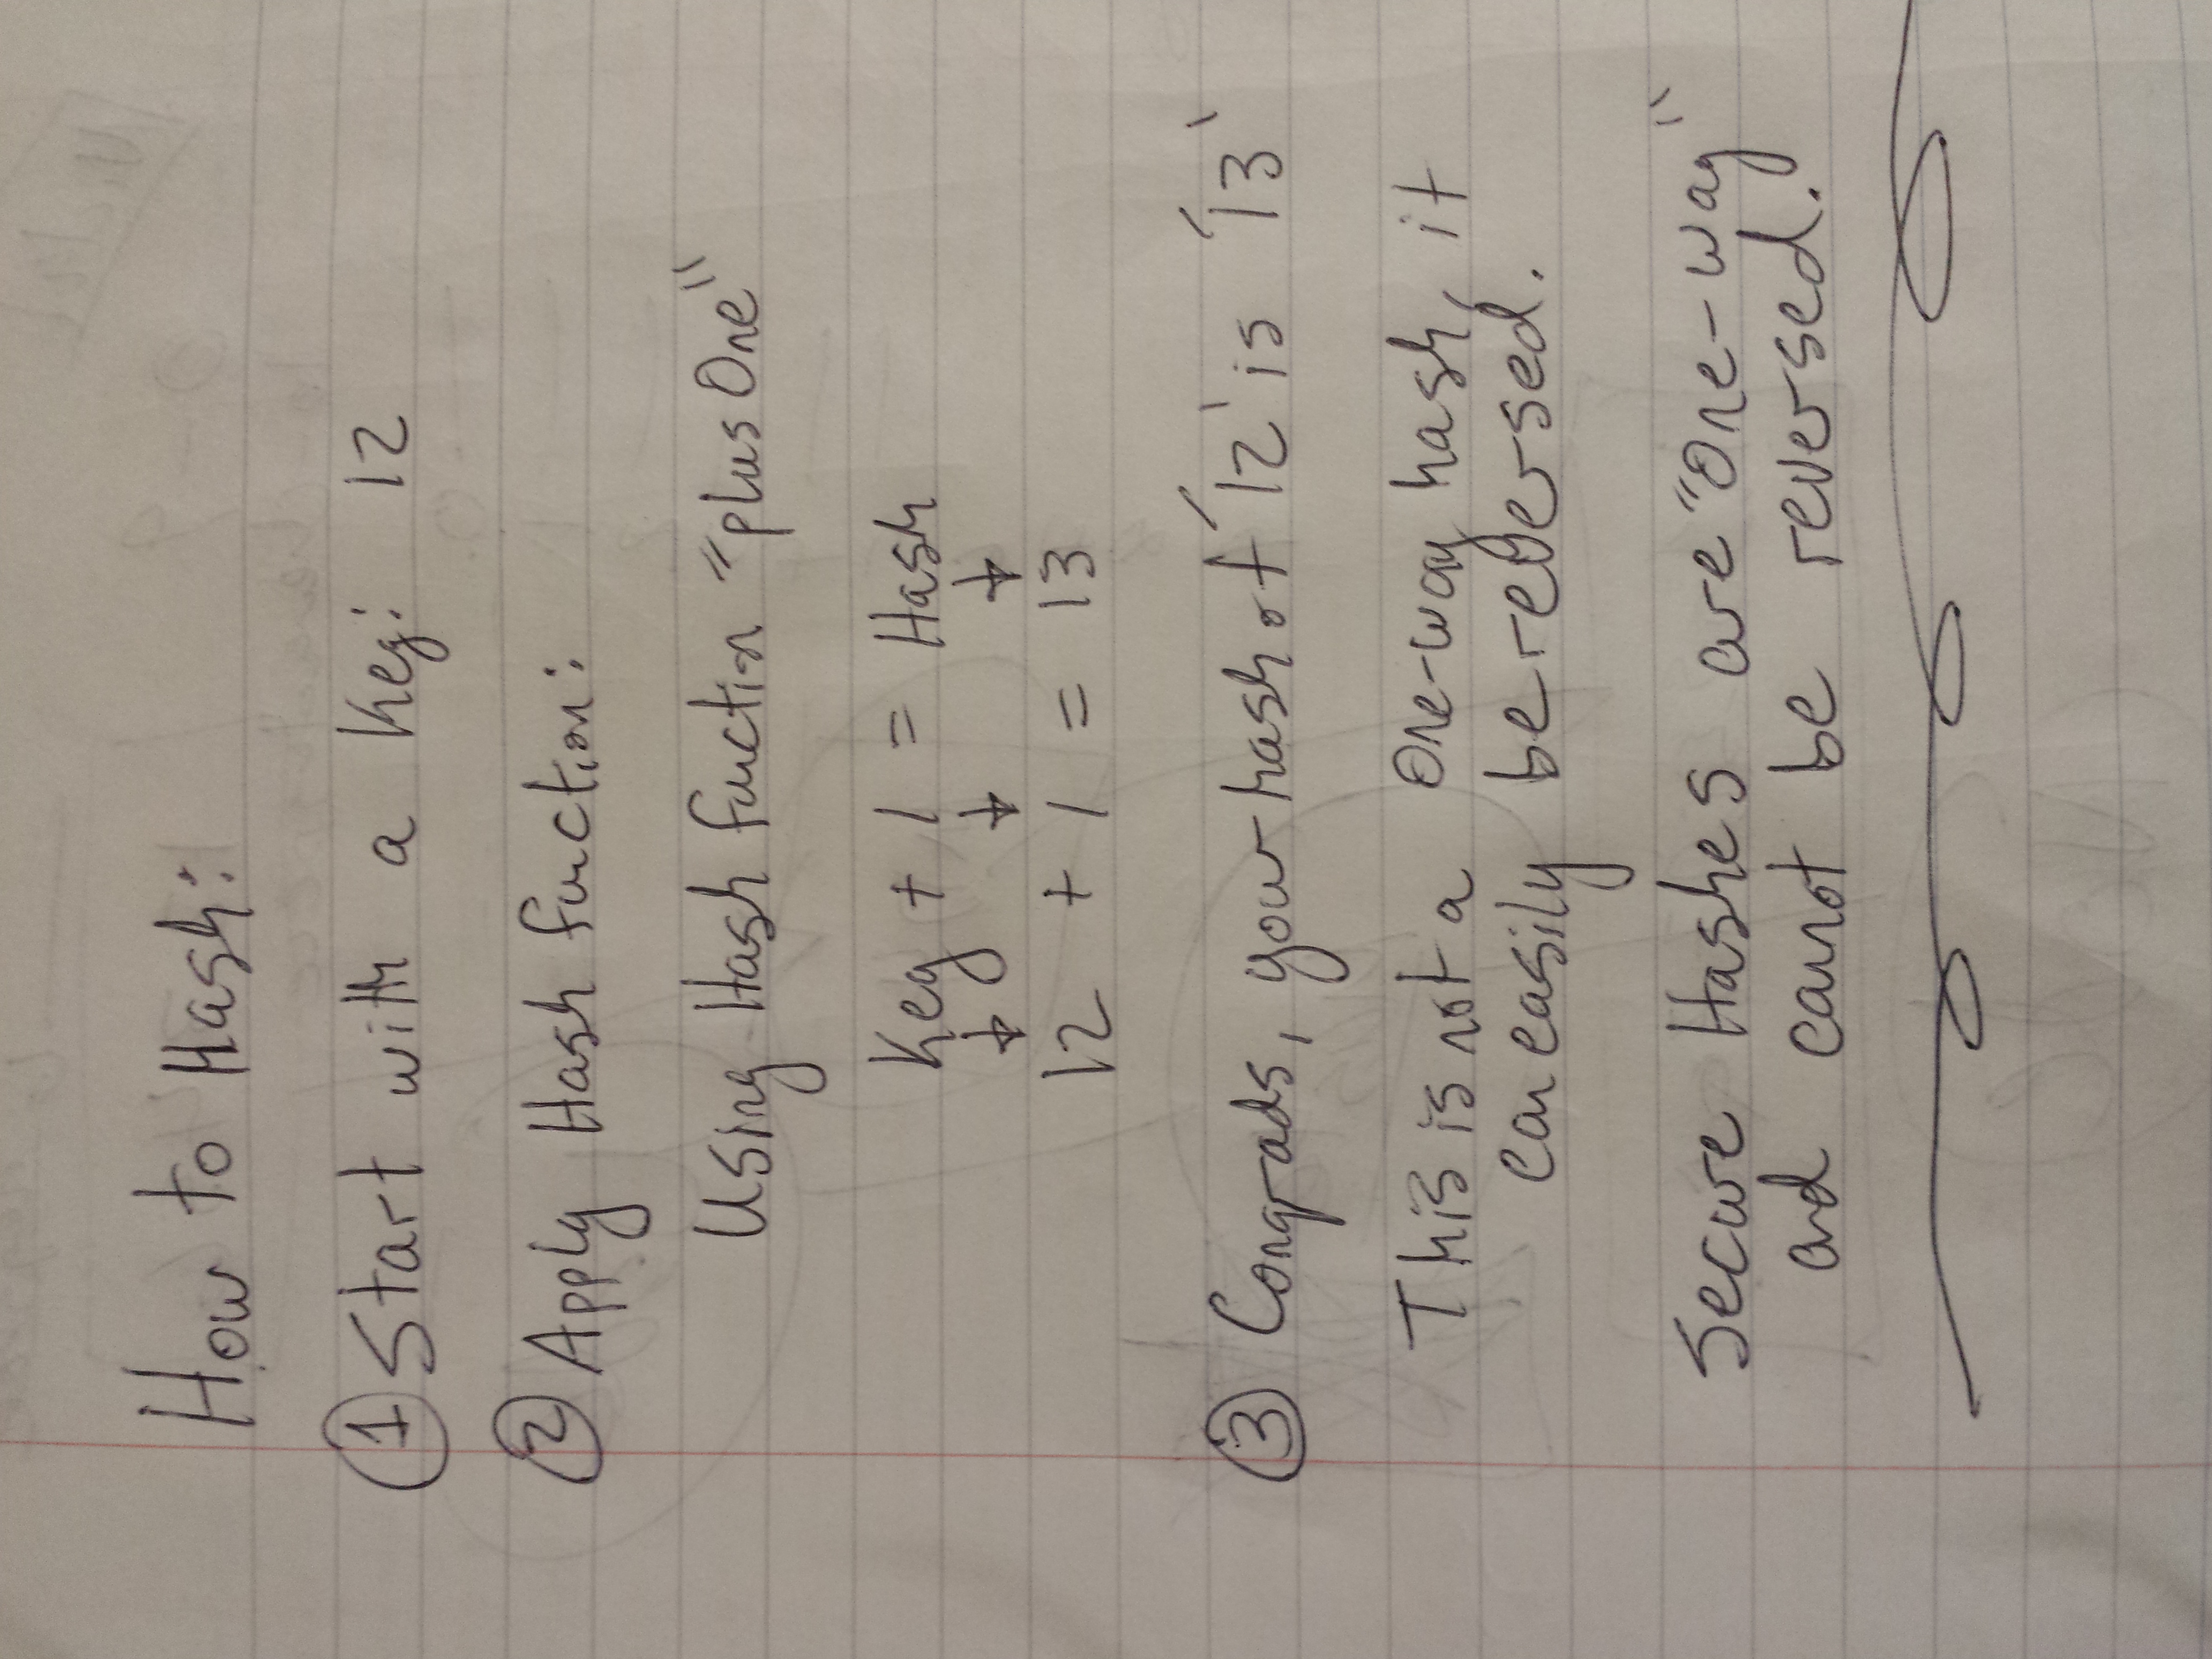 How to Hash:
1 Start with a Key: 12
2 Apply Hash function:
Using Hash function "plusOne"
Key + 1 = Hash
↓ ↓ ↓
12 + 1 = 13
3 Congrads, your hash of '12' is '13'
This is not a one-way hash, it
can easily be reversed.
Secure Hashes are "one-way"
and cannot be reversed.